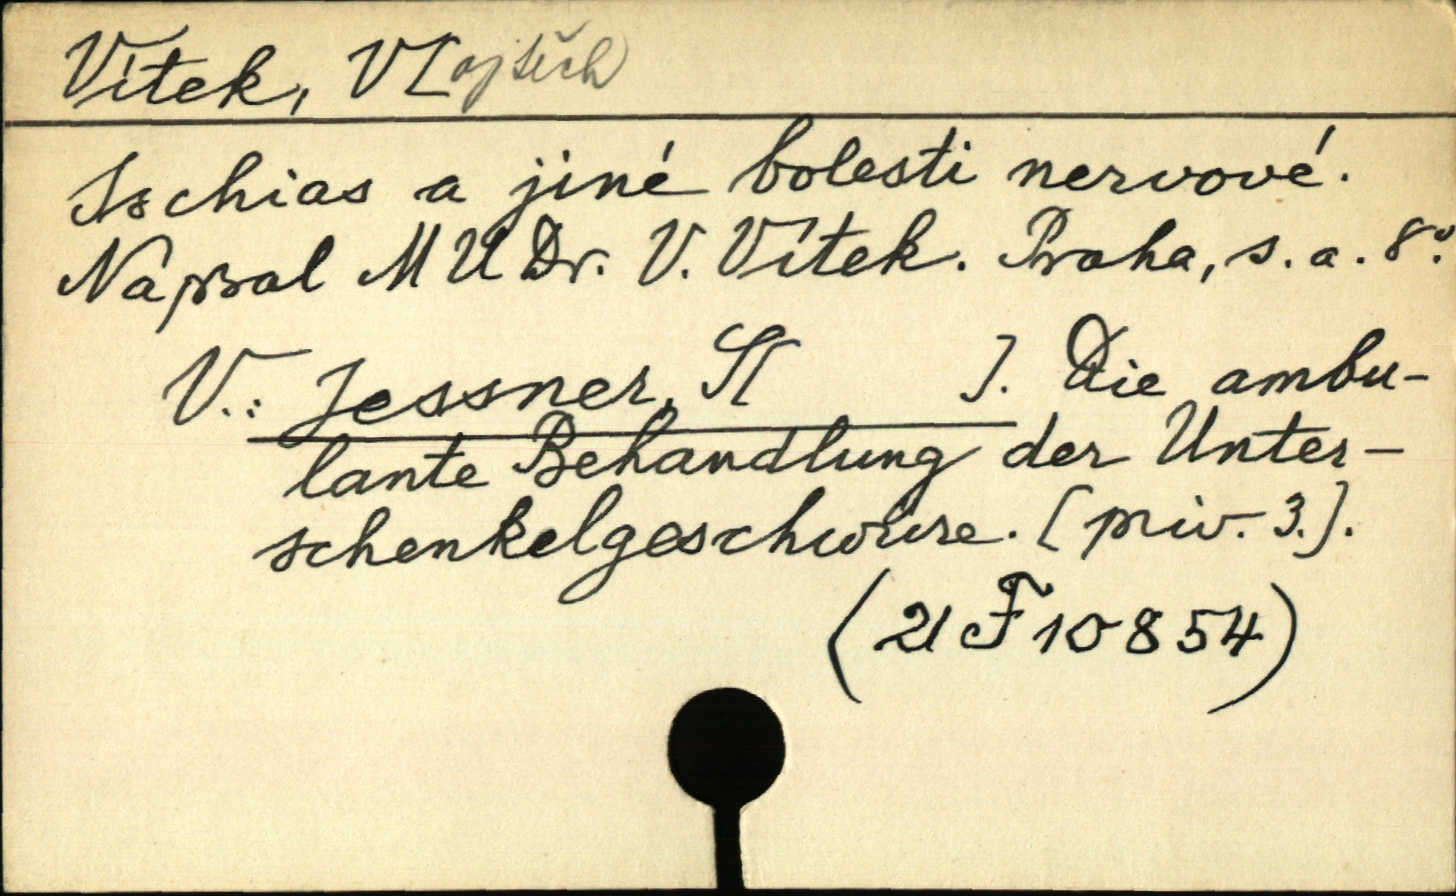 Vítek, V[ojtěch
Ischias a jiné bolesti nervové.
Napsal MUDr. V. Vítek. Praha, s. a. 8°.
V.: Jessner, S[ ]. Die ambu-
lante Behandlung der Unter-
schenkelgeschwüre. [přiv. 3.].
(21 F 10854)